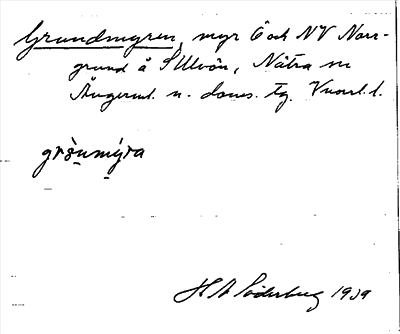 Grundmyren, myr Ö och NV Norr-
grund å S Ulvön, Nätra sn
Ångerml. n. doms. tg. V norrl. l.
grònmýra
H A Söderberg 1939